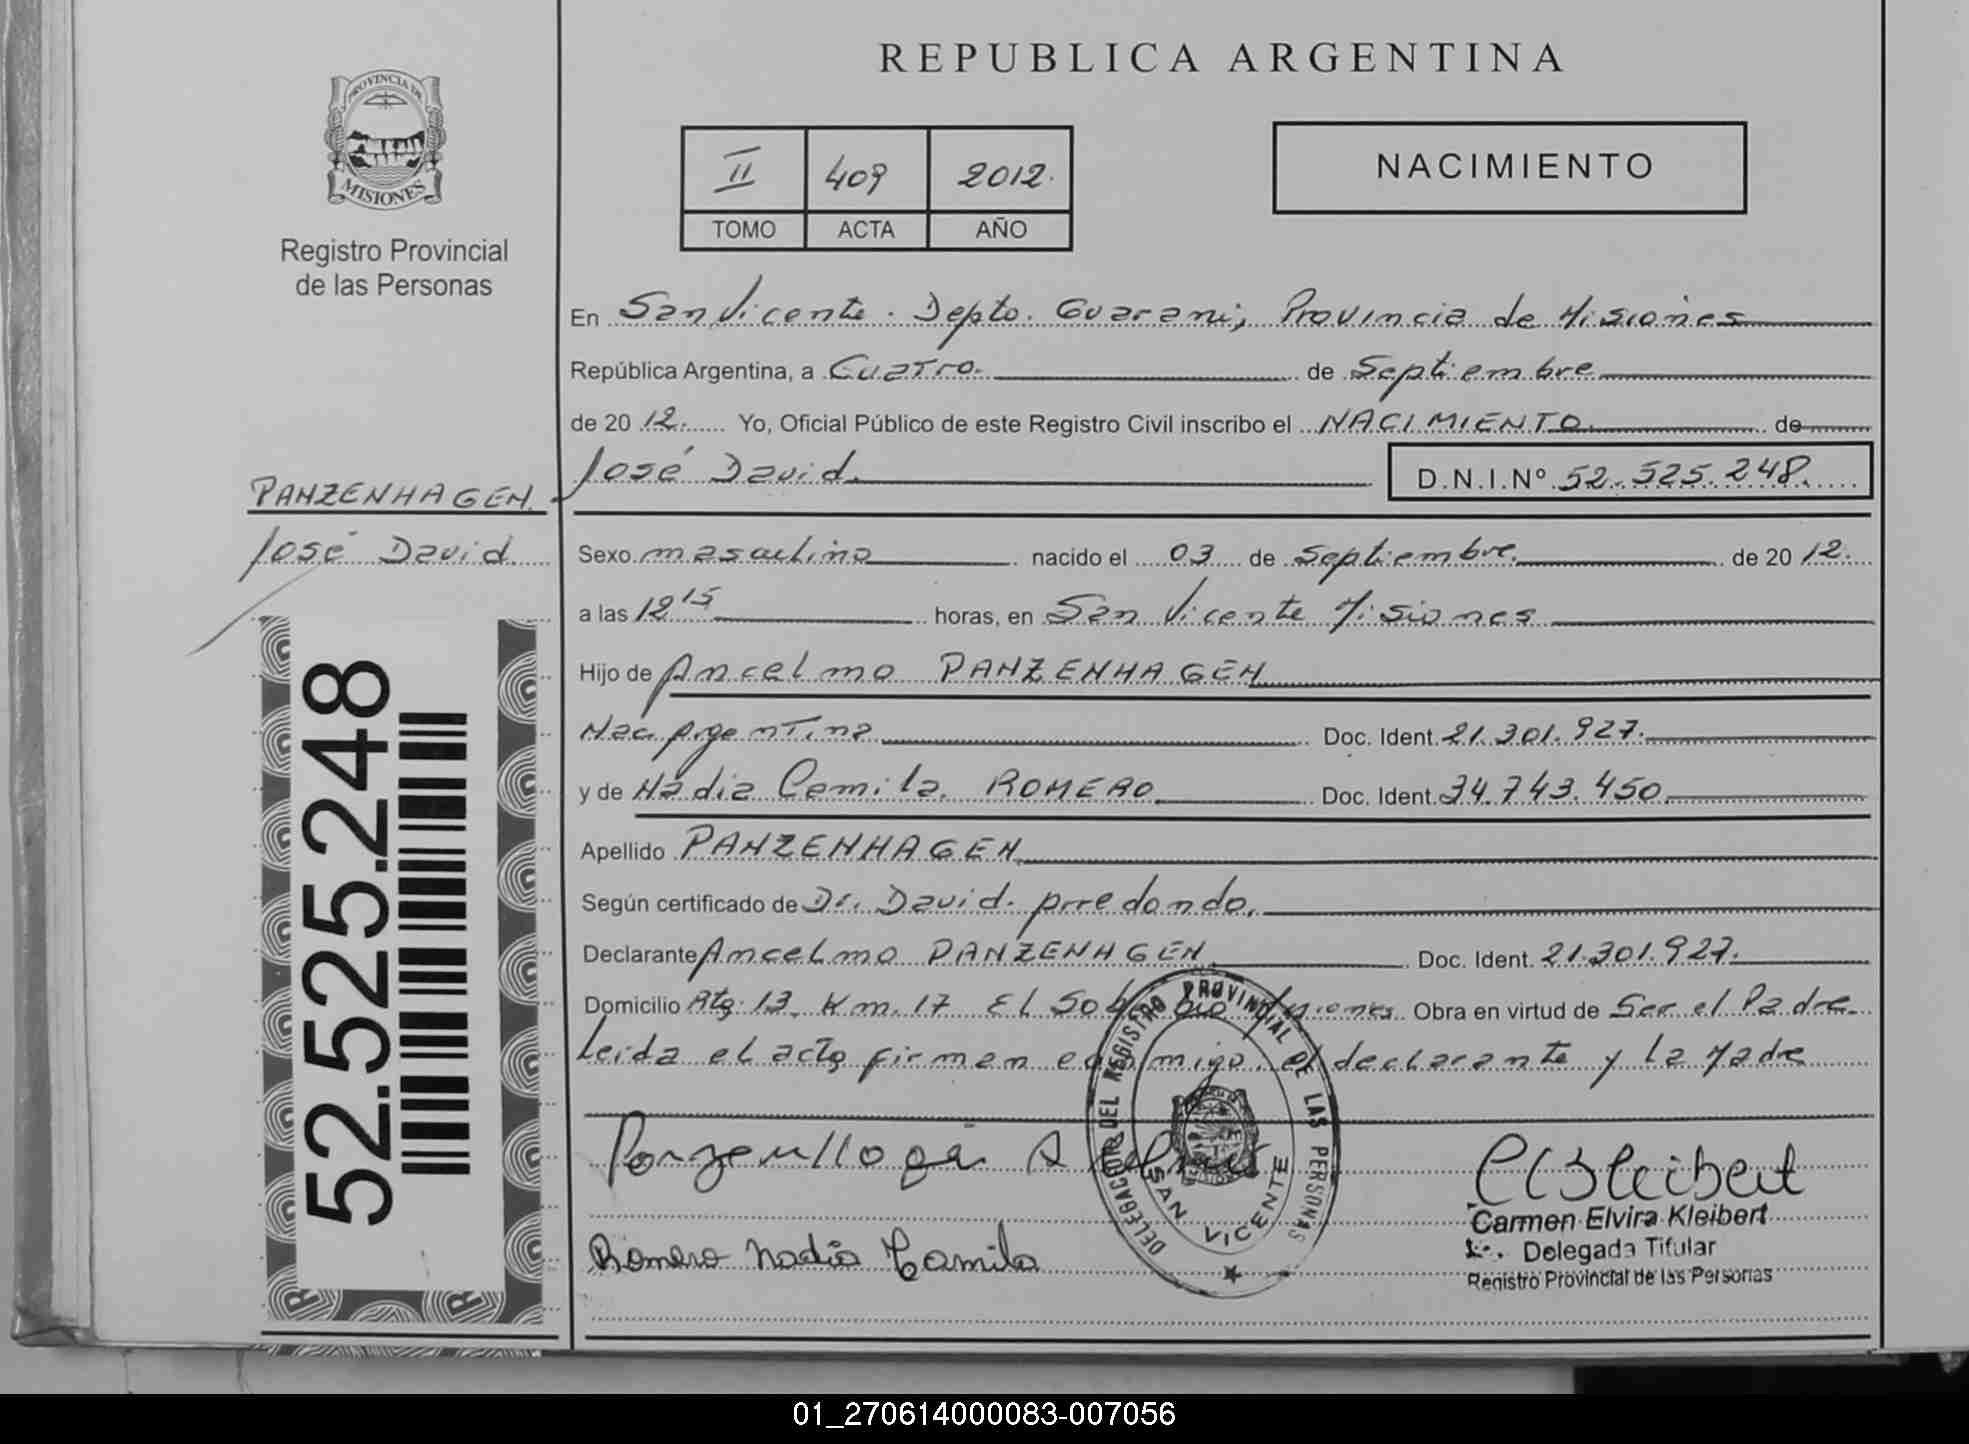 REPUBLICA ARGENTINA
PROVINCIA DE
MISIONES
Registro Provincial
de las Personas
II 409 2012.
TOMO ACTA AÑO
NACIMIENTO
En San Vicente. Depto. Guarani, Provincia de Misiones
República Argentina, a Cuatro. de Septiembre
de 20 12. Yo, Oficial Público de este Registro Civil inscribo el NACIMIENTO. de
José David. D.N.I.Nº 52.525.248.
PANZENHAGEN.
José David.
Sexo masculino nacido el 03 de Septiembre. de 20 12.
a las 12 15 horas, en San Vicente Misiones
Hijo de Ancelmo PANZENHAGEN
Nac. Argentina Doc. Ident. 21.301.927.
y de Nadia Camila. ROMERO Doc. Ident. 34.743.450.
Apellido PANZENHAGEN
Según certificado de Dr. David. Arredondo.
Declarante Ancelmo PANZENHAGEN Doc. Ident. 21.301.927.
Domicilio Rta. 13. Km. 17 El Soberbio Misiones. Obra en virtud de Ser el Padre.
Leida el acta firman conmigo. el declarante y La Madre
DELEGACION DEL REGISTRO PROVINCIAL DE LAS PERSONAS
SAN VICENTE
Romero Nadia Camila
Carmen Elvira Kleibert
Delegada Titular
Registro Provincial de las Personas
52.525.248
01_270614000083-007056